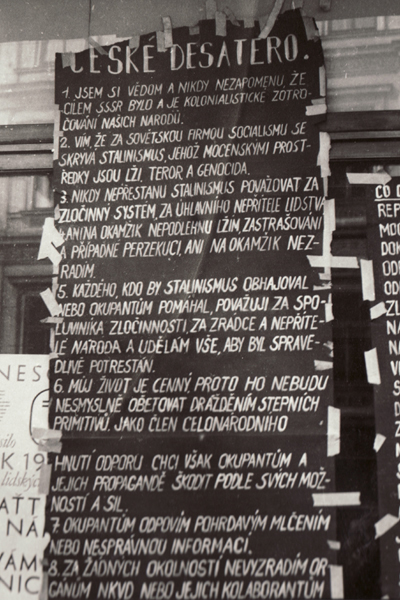 ČESKÉ DESATERO.
1. JSEM SI VĚDOM A NIKDY NEZAPOMENU, ŽE
CÍLEM SSSR BYLO A JE KOLONIALISTICKÉ ZOTRO-
ČOVÁNÍ NAŠICH NÁRODŮ.
2. VÍM, ŽE ZA SOVĚTSKOU FIRMOU SOCIALISMU SE
SKRÝVÁ STALINISMUS, JEHOŽ MOCENSKÝMI PROST-
ŘEDKY JSOU LŽI, TEROR A GENOCIDA.
3. NIKDY NEPŘESTANU STALINISMUS POVAŽOVAT ZA
ZLOČINNÝ SYSTÉM, ZA ÚHLAVNÍHO NEPŘÍTELE LIDSTVA
4. ANI NA OKAMŽIK NEPODLEHNU LŽÍM, ZASTRAŠOVÁNÍ
A PŘÍPADNÉ PERZEKUCI, ANI NA OKAMŽIK NEZ-
RADÍM.
5. KAŽDÉHO, KDO BY STALINISMUS OBHAJOVAL
NEBO OKUPANTŮM POMÁHAL, POVAŽUJI ZA SPO-
LUVINÍKA ZLOČINNOSTI, ZA ZRÁDCE A NEPŘÍTE-
LE NÁRODA A UDĚLÁM VŠE, ABY BYL SPRAVE-
DLIVĚ POTRESTÁN.
6. MŮJ ŽIVOT JE CENNÝ PROTO HO NEBUDU
NESMYSLNĚ OBĚTOVAT DRÁŽDĚNÍM STEPNÍCH
PRIMITIVŮ, JAKO ČLEN CELONÁRODNÍHO
HNUTÍ ODPORU CHCI VŠAK OKUPANTŮM A
JEJICH PROPAGANDĚ ŠKODIT PODLE SVÝCH MOŽ-
NOSTÍ A SIL.
7. OKUPANTŮM ODPOVÍM POHRDAVÝM MLČENÍM
NEBO NESPRÁVNOU INFORMACÍ.
8. ZA ŽÁDNÝCH OKOLNOSTÍ NEVYZRADÍM OR-
GÁNŮM NKVD NEBO JEJICH KOLABORANTŮM
NES
K 19
lidských
NÁ
VÁM
NIC
CO
REP
MOC
DOK